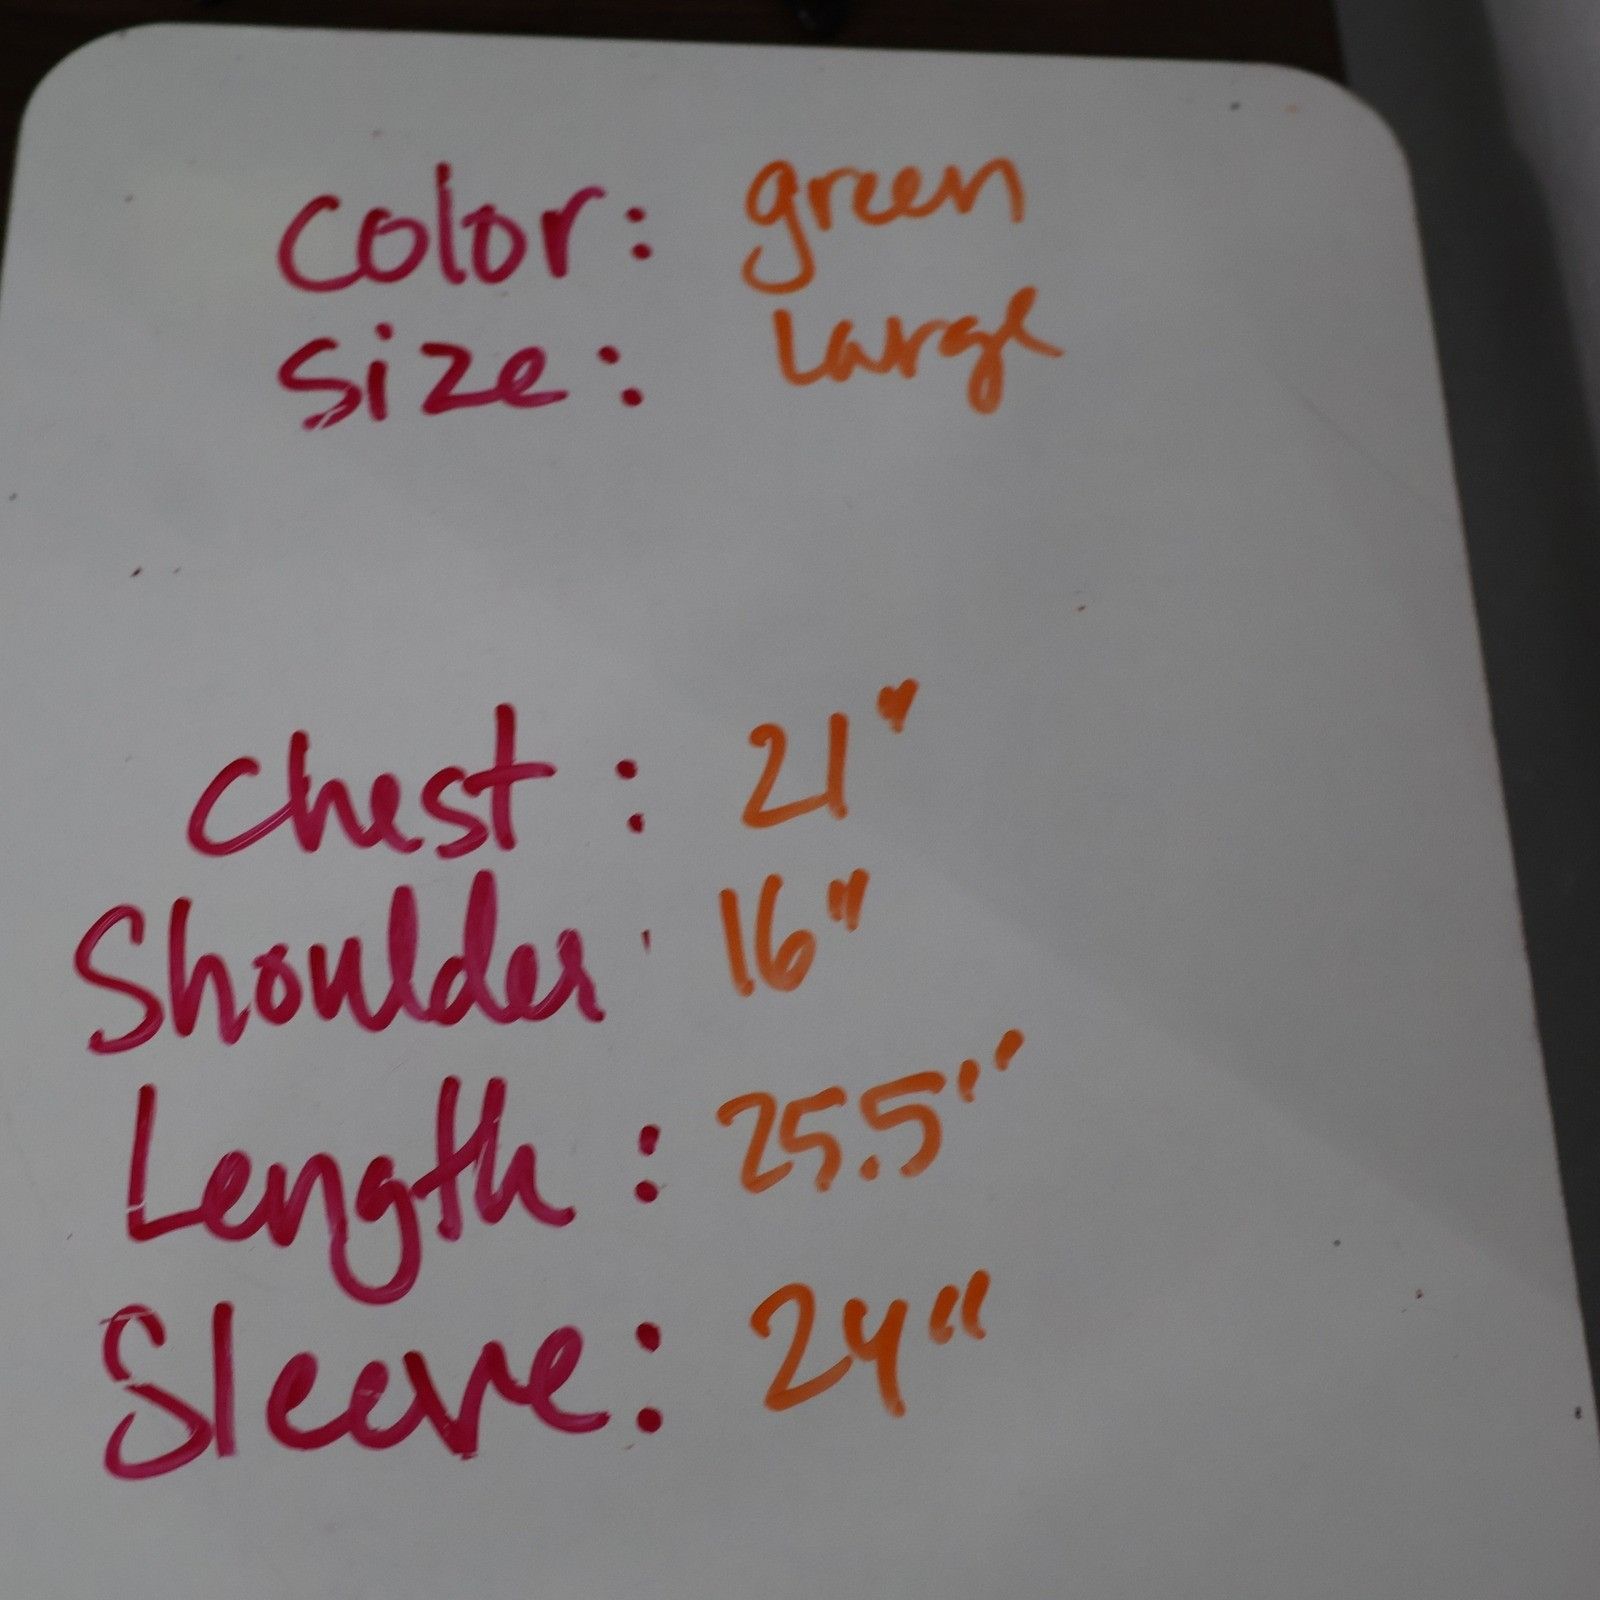 color: green
size: Large
Chest: 21"
Shoulder: 16"
Length: 25.5"
Sleeve: 24"